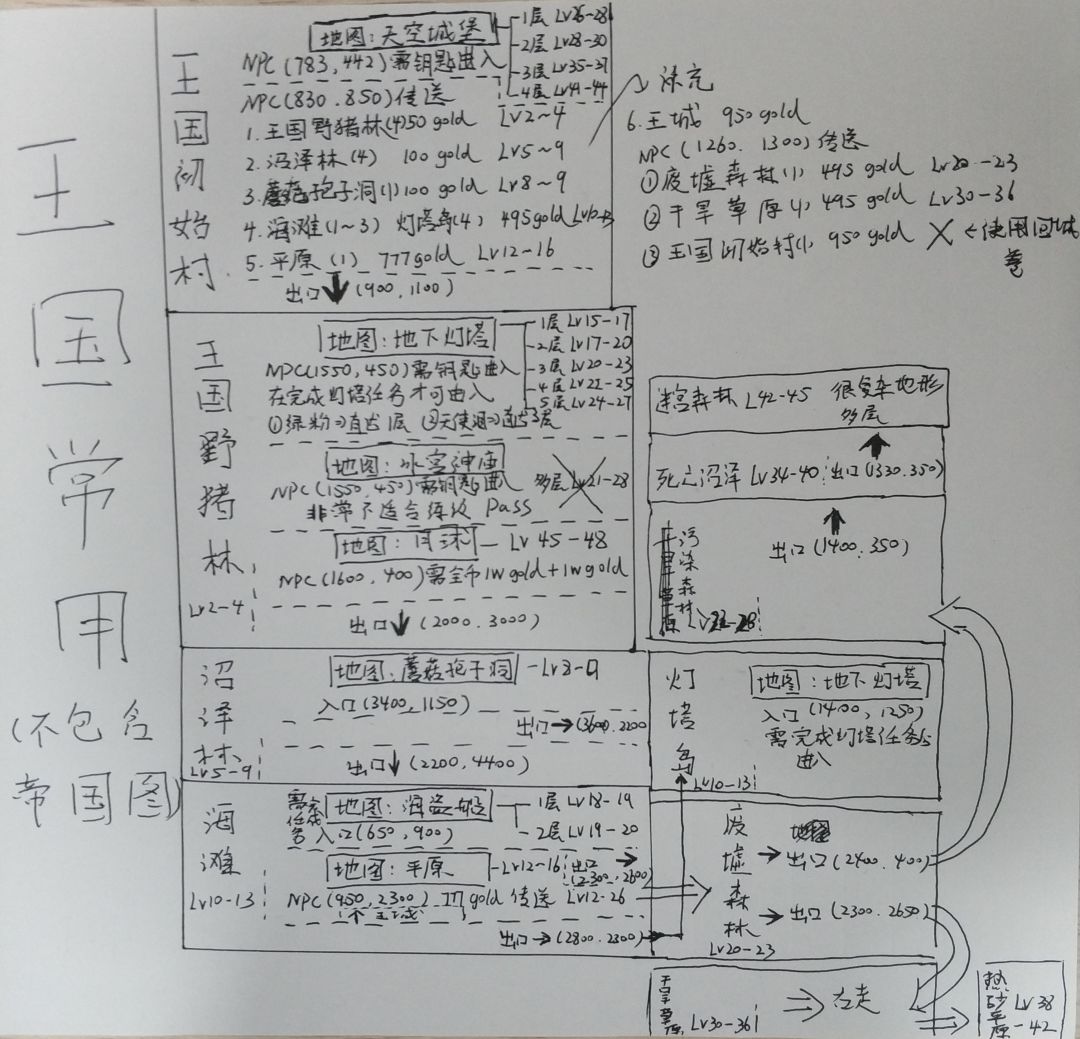 王国常用
(不包含
帝国图)
王国初始村
地图:天空城堡
1层 Lv26-28
2层 Lv28-30
3层 Lv35-37
4层 Lv41-44
NPC(783,442)需钥匙进入
NPC(830.850)传送
1.王国野猪林(4)50 gold Lv2~4
2.沼泽林(4) 100 gold Lv5~9
3.蘑菇孢子洞(1)100 gold Lv8~9
4.海滩(1~3) 灯塔岛(4) 495gold Lv10-13
5.平原(1) 777gold Lv12-16
出口 (900,1100)
补充
6.王城 950 gold
NPC(1260.1300)传送
①废墟森林(1) 495 gold Lv20.-23
②干旱草原(1) 495 gold Lv30-36
③王国初始村(1) 950 gold ←使用回城卷
王国野猪林
Lv2-4
地图:地下灯塔
1层 Lv15-17
2层 Lv17-20
3层 Lv20-23
4层 Lv21-25
5层 Lv24-27
NPC(1550,450)需钥匙进入
在完成灯塔任务才可进入
地图:冰宫神庙
NPC(1550,450)需钥匙进入 多层 Lv21-28
非常不适合练级 Pass
地图:月球 Lv 45-48
NPC(1600,400)需金币1W gold+1W gold
出口 (2000.3000)
迷宫森林 L42-45 很复杂地形
多层
死亡沼泽 Lv34-40 出口(1330.350)
出口(1400.350)
污染森林
沼泽林
Lv5-9
地图:蘑菇孢子洞 -Lv8-9
入口(3400,1150)
出口→(3600.2200
出口 (2200,4400)
灯塔岛
Lv10-13
地图:地下灯塔
入口(1400,1250)
需完成灯塔任务
进入
海滩
Lv10-13
地图:海盗船
1层 Lv18-19
2层 Lv19-20
入口(650,900)
地图:平原 -Lv12-16
出口→
(2300,2600)
NPC(950,2300) 777gold 传送 Lv12-26
出口→(2800.2300)
废墟森林
Lv20-23
→出口(2400.400)
→出口(2300.2650)
干旱草原 Lv30-36
⇒右走
热砂平原 Lv38-42